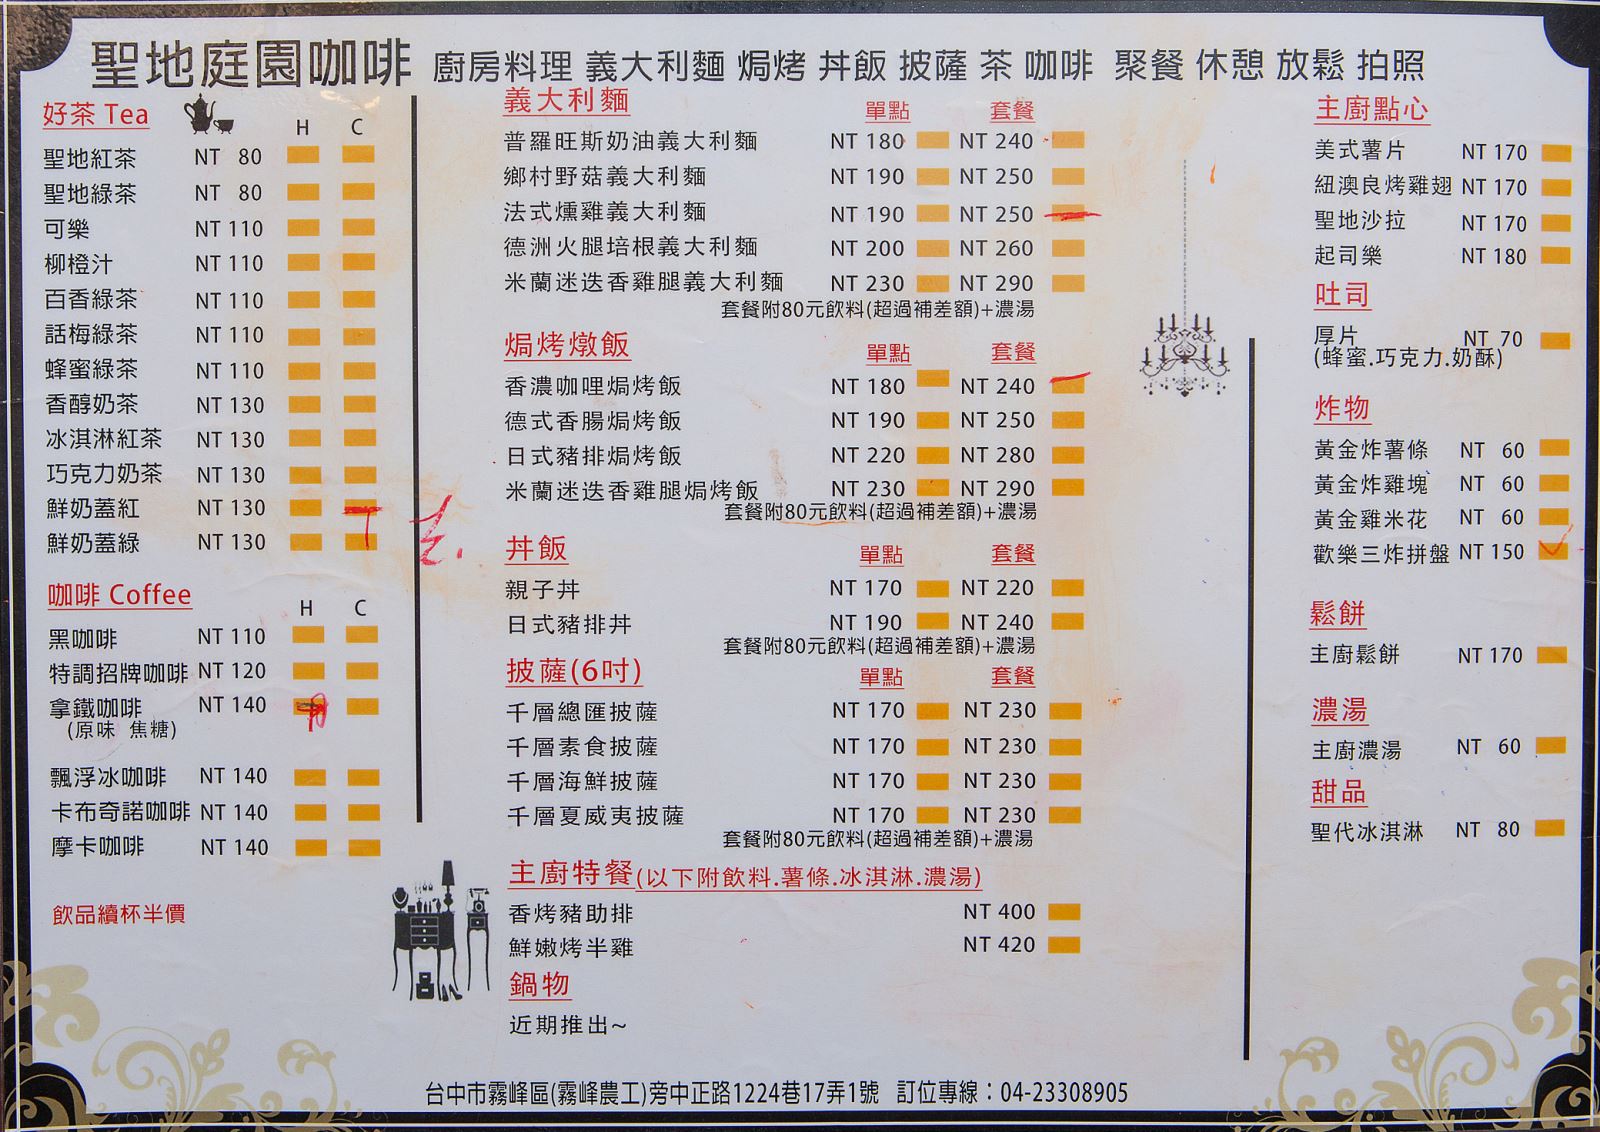 聖地庭園咖啡 廚房料理 義大利麵 焗烤 丼飯 披薩 茶 咖啡 聚餐 休憩 放鬆 拍照
好茶 Tea H C
聖地紅茶 NT 80
聖地綠茶 NT 80
可樂 NT 110
柳橙汁 NT 110
百香綠茶 NT 110
話梅綠茶 NT 110
蜂蜜綠茶 NT 110
香醇奶茶 NT 130
冰淇淋紅茶 NT 130
巧克力奶茶 NT 130
鮮奶蓋紅 NT 130
鮮奶蓋綠 NT 130
咖啡 Coffee H C
黑咖啡 NT 110
特調招牌咖啡 NT 120
拿鐵咖啡 NT 140
(原味 焦糖)
飄浮冰咖啡 NT 140
卡布奇諾咖啡 NT 140
摩卡咖啡 NT 140
飲品續杯半價
義大利麵 單點 套餐
普羅旺斯奶油義大利麵 NT 180 NT 240
鄉村野菇義大利麵 NT 190 NT 250
法式燻雞義大利麵 NT 190 NT 250
德洲火腿培根義大利麵 NT 200 NT 260
米蘭迷迭香雞腿義大利麵 NT 230 NT 290
套餐附80元飲料(超過補差額)+濃湯
焗烤燉飯 單點 套餐
香濃咖哩焗烤飯 NT 180 NT 240
德式香腸焗烤飯 NT 190 NT 250
日式豬排焗烤飯 NT 220 NT 280
米蘭迷迭香雞腿焗烤飯 NT 230 NT 290
套餐附80元飲料(超過補差額)+濃湯
丼飯 單點 套餐
親子丼 NT 170 NT 220
日式豬排丼 NT 190 NT 240
套餐附80元飲料(超過補差額)+濃湯
披薩(6吋) 單點 套餐
千層總匯披薩 NT 170 NT 230
千層素食披薩 NT 170 NT 230
千層海鮮披薩 NT 170 NT 230
千層夏威夷披薩 NT 170 NT 230
套餐附80元飲料(超過補差額)+濃湯
主廚特餐(以下附飲料.薯條.冰淇淋.濃湯)
香烤豬助排 NT 400
鮮嫩烤半雞 NT 420
鍋物
近期推出~
主廚點心
美式薯片 NT 170
紐澳良烤雞翅 NT 170
聖地沙拉 NT 170
起司樂 NT 180
吐司
厚片 NT 70
(蜂蜜.巧克力.奶酥)
炸物
黃金炸薯條 NT 60
黃金炸雞塊 NT 60
黃金雞米花 NT 60
歡樂三炸拼盤 NT 150
鬆餅
主廚鬆餅 NT 170
濃湯
主廚濃湯 NT 60
甜品
聖代冰淇淋 NT 80
台中市霧峰區(霧峰農工)旁中正路1224巷17弄1號 訂位專線：04-23308905